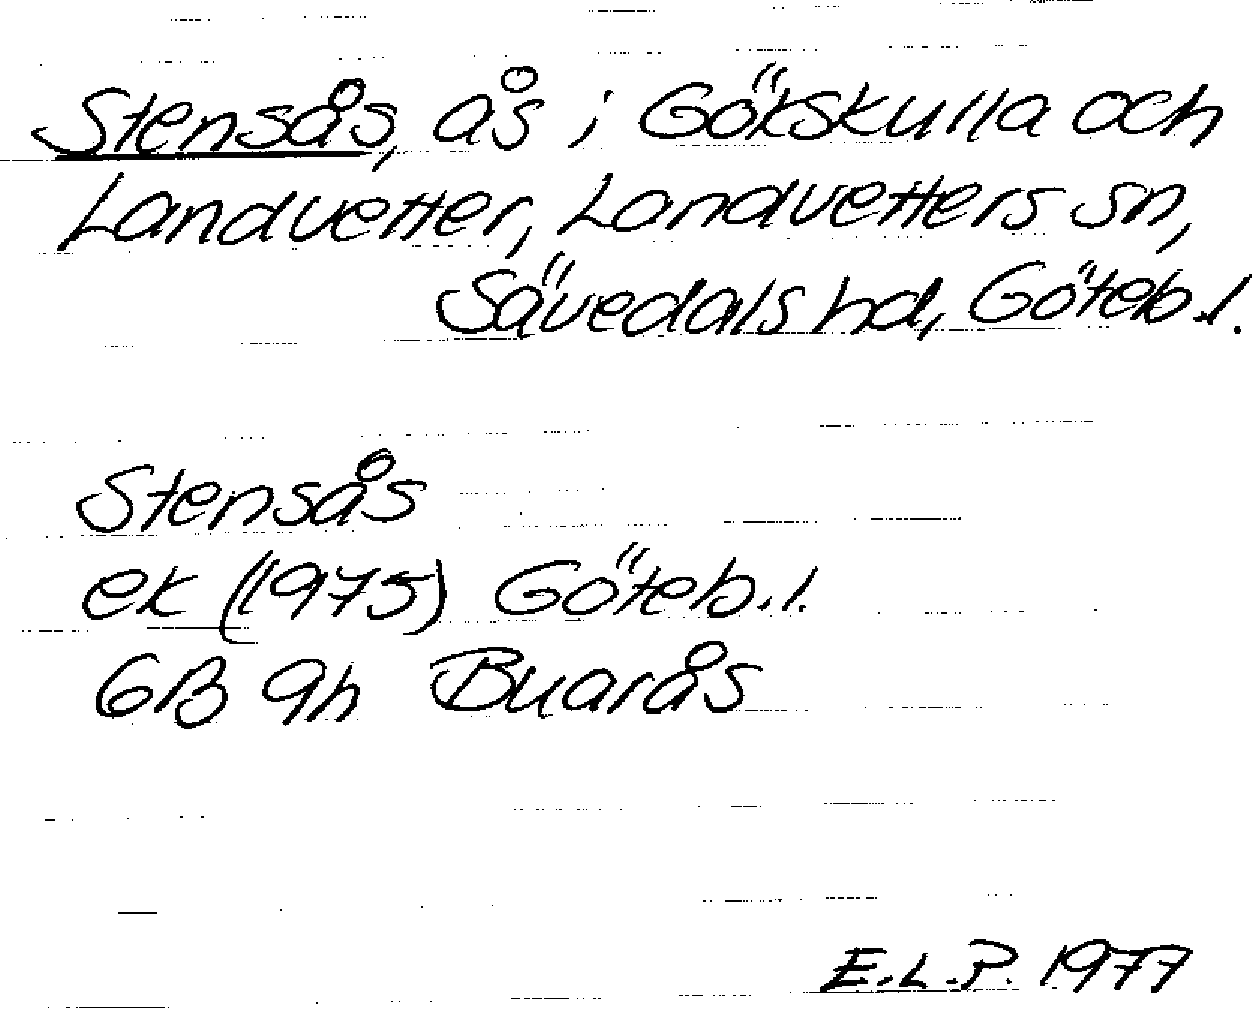 Stensås, ås i Gökskulla och
Landvetter, Landvetters sn,
Sävedals hd, Göteb.l.
Stensås
ek (1975) Göteb.l.
6B 9h Buarås
E.L.P. 1977